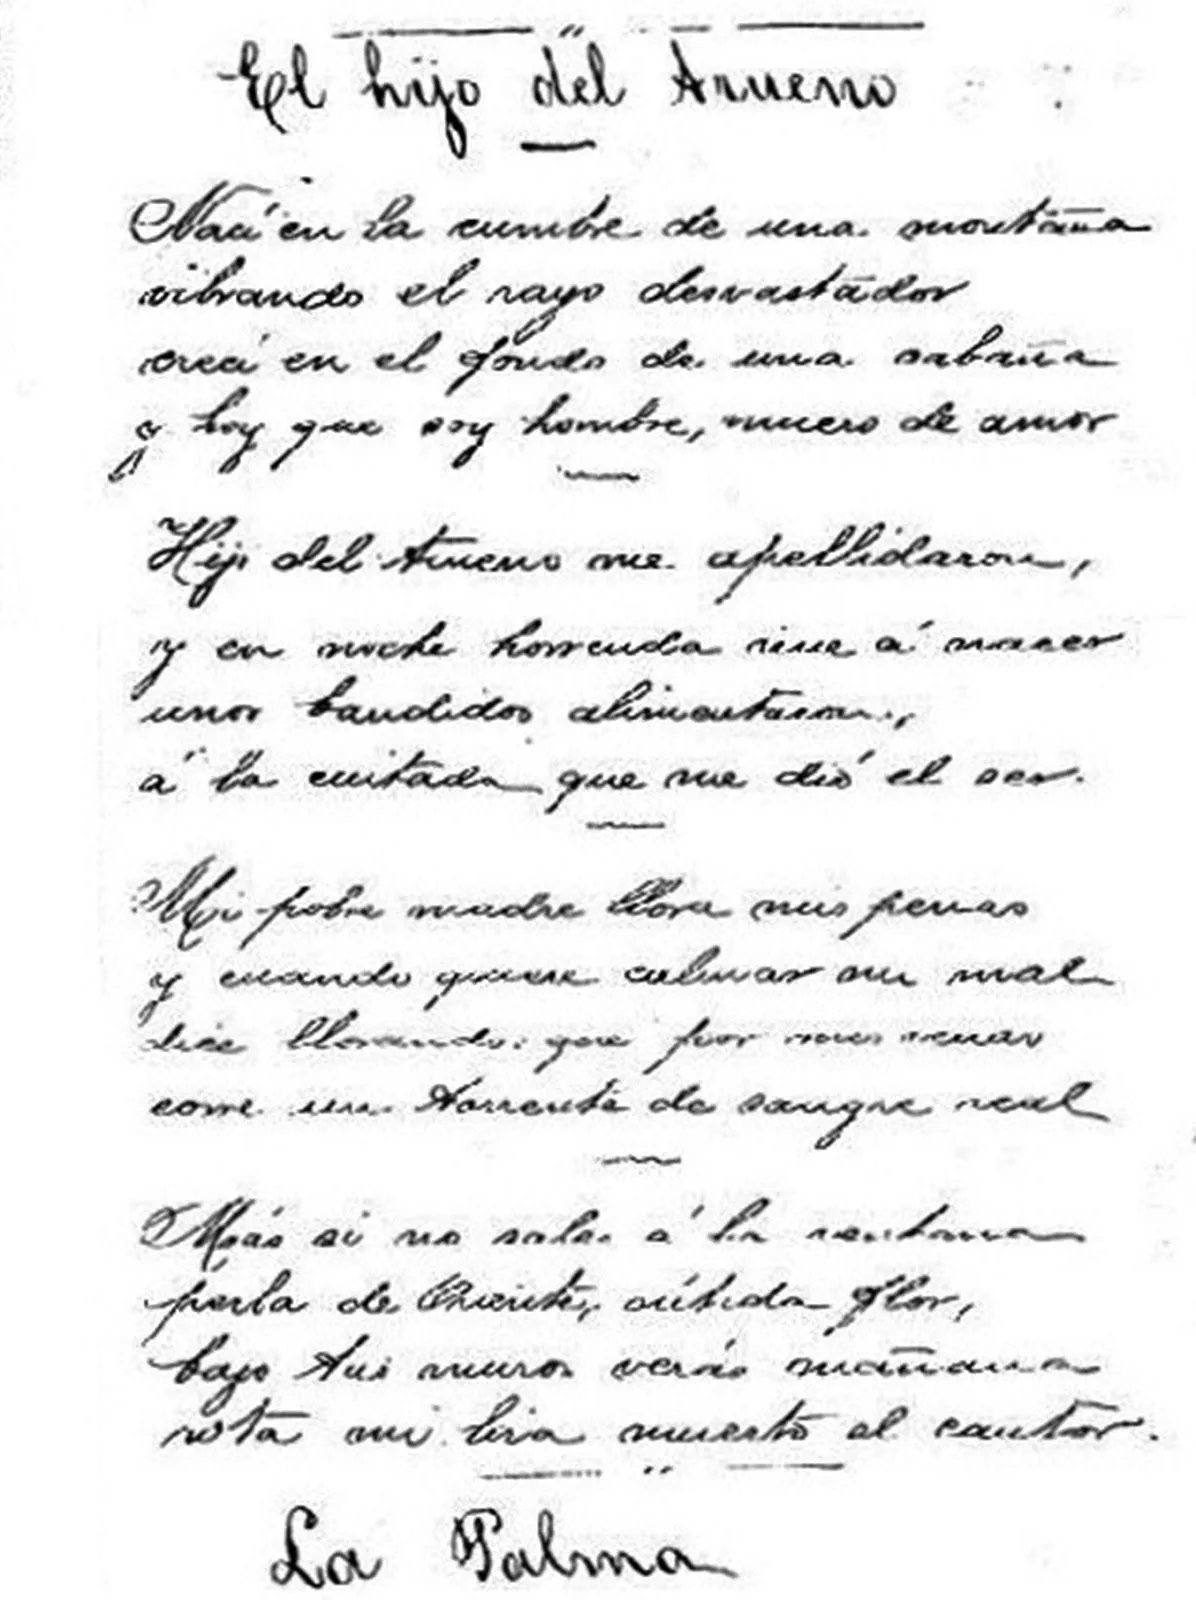 El hijo del Trueno
Nací en la cumbre de una montaña
vibrando el rayo desvastador
crecí en el fondo de una sabaña
y hoy que soy hombre, muero de amor
Hijo del Trueno me apellidaron,
y en noche horrenda vine á nacer
unos bandidos alimentaron,
á la cuitada que me dió el ser.
Mi pobre madre llora mis penas
y cuando quiere calmar mi mal
dice llorando que por mis venas
corre un torrente de sangre real
Más si no sales á la ventana
perla de Oriente, nítida flor,
bajo tus muros verás mañana
rota mi lira muerto el cantor.
La Palma